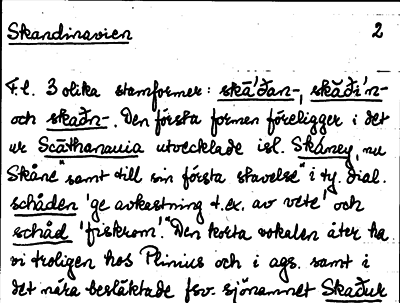 Skandinavien 2
F.l. 3 olika stamformer: skā́ðan-, skăðí'n-
och skaðn-. Den första formen föreligger i det
ur Scāthanauia utvecklade isl. Skáney, nu
Skåne" samt till sin första stavelse" i ty. dial.
schåden 'ge avkastning t.ex. av vete' och
schåd 'fiskrom'." Den korta vokalen åter ha
vi troligen hos Plinius och i ags. samt i
det nära besläktade fsv. sjönamnet Skaður